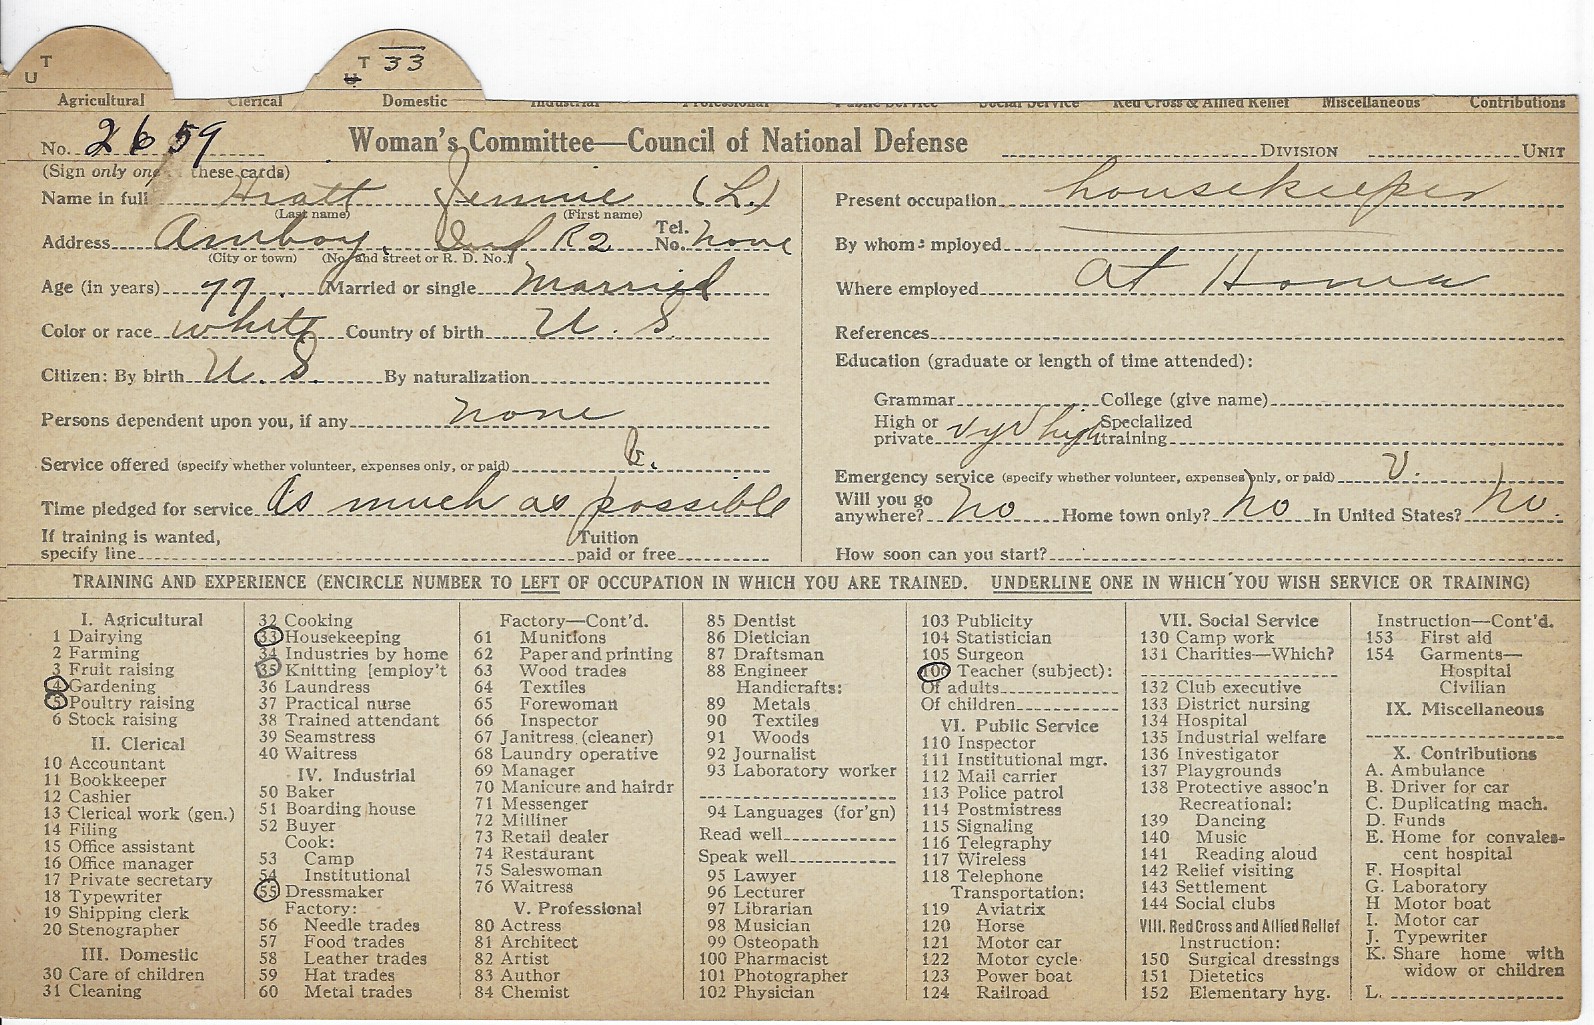 T
U
T 33
U
Agricultural Clerical Domestic Industrial Professional Public Service Social Service Red Cross & Allied Relief Miscellaneous Contributions
No. 2659 Woman's Committee—Council of National Defense DIVISION UNIT
(Sign only one these cards)
Name in full Hiatt Jennie (L.)
(Last name) (First name)
Address Amboy, Ind R2 Tel. No. none
(City or town) (No. and street or R. D. No.)
Age (in years) 77. Married or single Married
Color or race white Country of birth U. S.
Citizen: By birth U. S. By naturalization
Persons dependent upon you, if any none
Service offered (specify whether volunteer, expenses only, or paid)
Time pledged for service As much as possible
If training is wanted,
specify line Tuition
paid or free
Present occupation housekeeper
By whom employed
Where employed At Home
References
Education (graduate or length of time attended):
Grammar College (give name)
High or
private high Specialized
training
Emergency service (specify whether volunteer, expenses only, or paid) V.
Will you go
anywhere? No Home town only? No In United States? No.
How soon can you start?
TRAINING AND EXPERIENCE (ENCIRCLE NUMBER TO LEFT OF OCCUPATION IN WHICH YOU ARE TRAINED. UNDERLINE ONE IN WHICH YOU WISH SERVICE OR TRAINING)
I. Agricultural
1 Dairying
2 Farming
3 Fruit raising
4 Gardening
5 Poultry raising
6 Stock raising
II. Clerical
10 Accountant
11 Bookkeeper
12 Cashier
13 Clerical work (gen.)
14 Filing
15 Office assistant
16 Office manager
17 Private secretary
18 Typewriter
19 Shipping clerk
20 Stenographer
III. Domestic
30 Care of children
31 Cleaning
32 Cooking
33 Housekeeping
34 Industries by home
35 Knitting [employ't
36 Laundress
37 Practical nurse
38 Trained attendant
39 Seamstress
40 Waitress
IV. Industrial
50 Baker
51 Boarding house
52 Buyer
Cook:
53 Camp
54 Institutional
55 Dressmaker
Factory:
56 Needle trades
57 Food trades
58 Leather trades
59 Hat trades
60 Metal trades
Factory—Cont'd.
61 Munitions
62 Paper and printing
63 Wood trades
64 Textiles
65 Forewoman
66 Inspector
67 Janitress (cleaner)
68 Laundry operative
69 Manager
70 Manicure and hairdr
71 Messenger
72 Milliner
73 Retail dealer
74 Restaurant
75 Saleswoman
76 Waitress
V. Professional
80 Actress
81 Architect
82 Artist
83 Author
84 Chemist
85 Dentist
86 Dietician
87 Draftsman
88 Engineer
Handicrafts:
89 Metals
90 Textiles
91 Woods
92 Journalist
93 Laboratory worker
94 Languages (for'gn)
Read well
Speak well
95 Lawyer
96 Lecturer
97 Librarian
98 Musician
99 Osteopath
100 Pharmacist
101 Photographer
102 Physician
103 Publicity
104 Statistician
105 Surgeon
106 Teacher (subject):
Of adults
Of children
VI. Public Service
110 Inspector
111 Institutional mgr.
112 Mail carrier
113 Police patrol
114 Postmistress
115 Signaling
116 Telegraphy
117 Wireless
118 Telephone
Transportation:
119 Aviatrix
120 Horse
121 Motor car
122 Motor cycle
123 Power boat
124 Railroad
VII. Social Service
130 Camp work
131 Charities—Which?
132 Club executive
133 District nursing
134 Hospital
135 Industrial welfare
136 Investigator
137 Playgrounds
138 Protective assoc'n
Recreational:
139 Dancing
140 Music
141 Reading aloud
142 Relief visiting
143 Settlement
144 Social clubs
VIII. Red Cross and Allied Relief
Instruction:
150 Surgical dressings
151 Dietetics
152 Elementary hyg.
Instruction—Cont'd.
153 First aid
154 Garments—
Hospital
Civilian
IX. Miscellaneous
X. Contributions
A. Ambulance
B. Driver for car
C. Duplicating mach.
D. Funds
E. Home for convales-
cent hospital
F. Hospital
G. Laboratory
H Motor boat
I. Motor car
J. Typewriter
K. Share home with
widow or children
L.